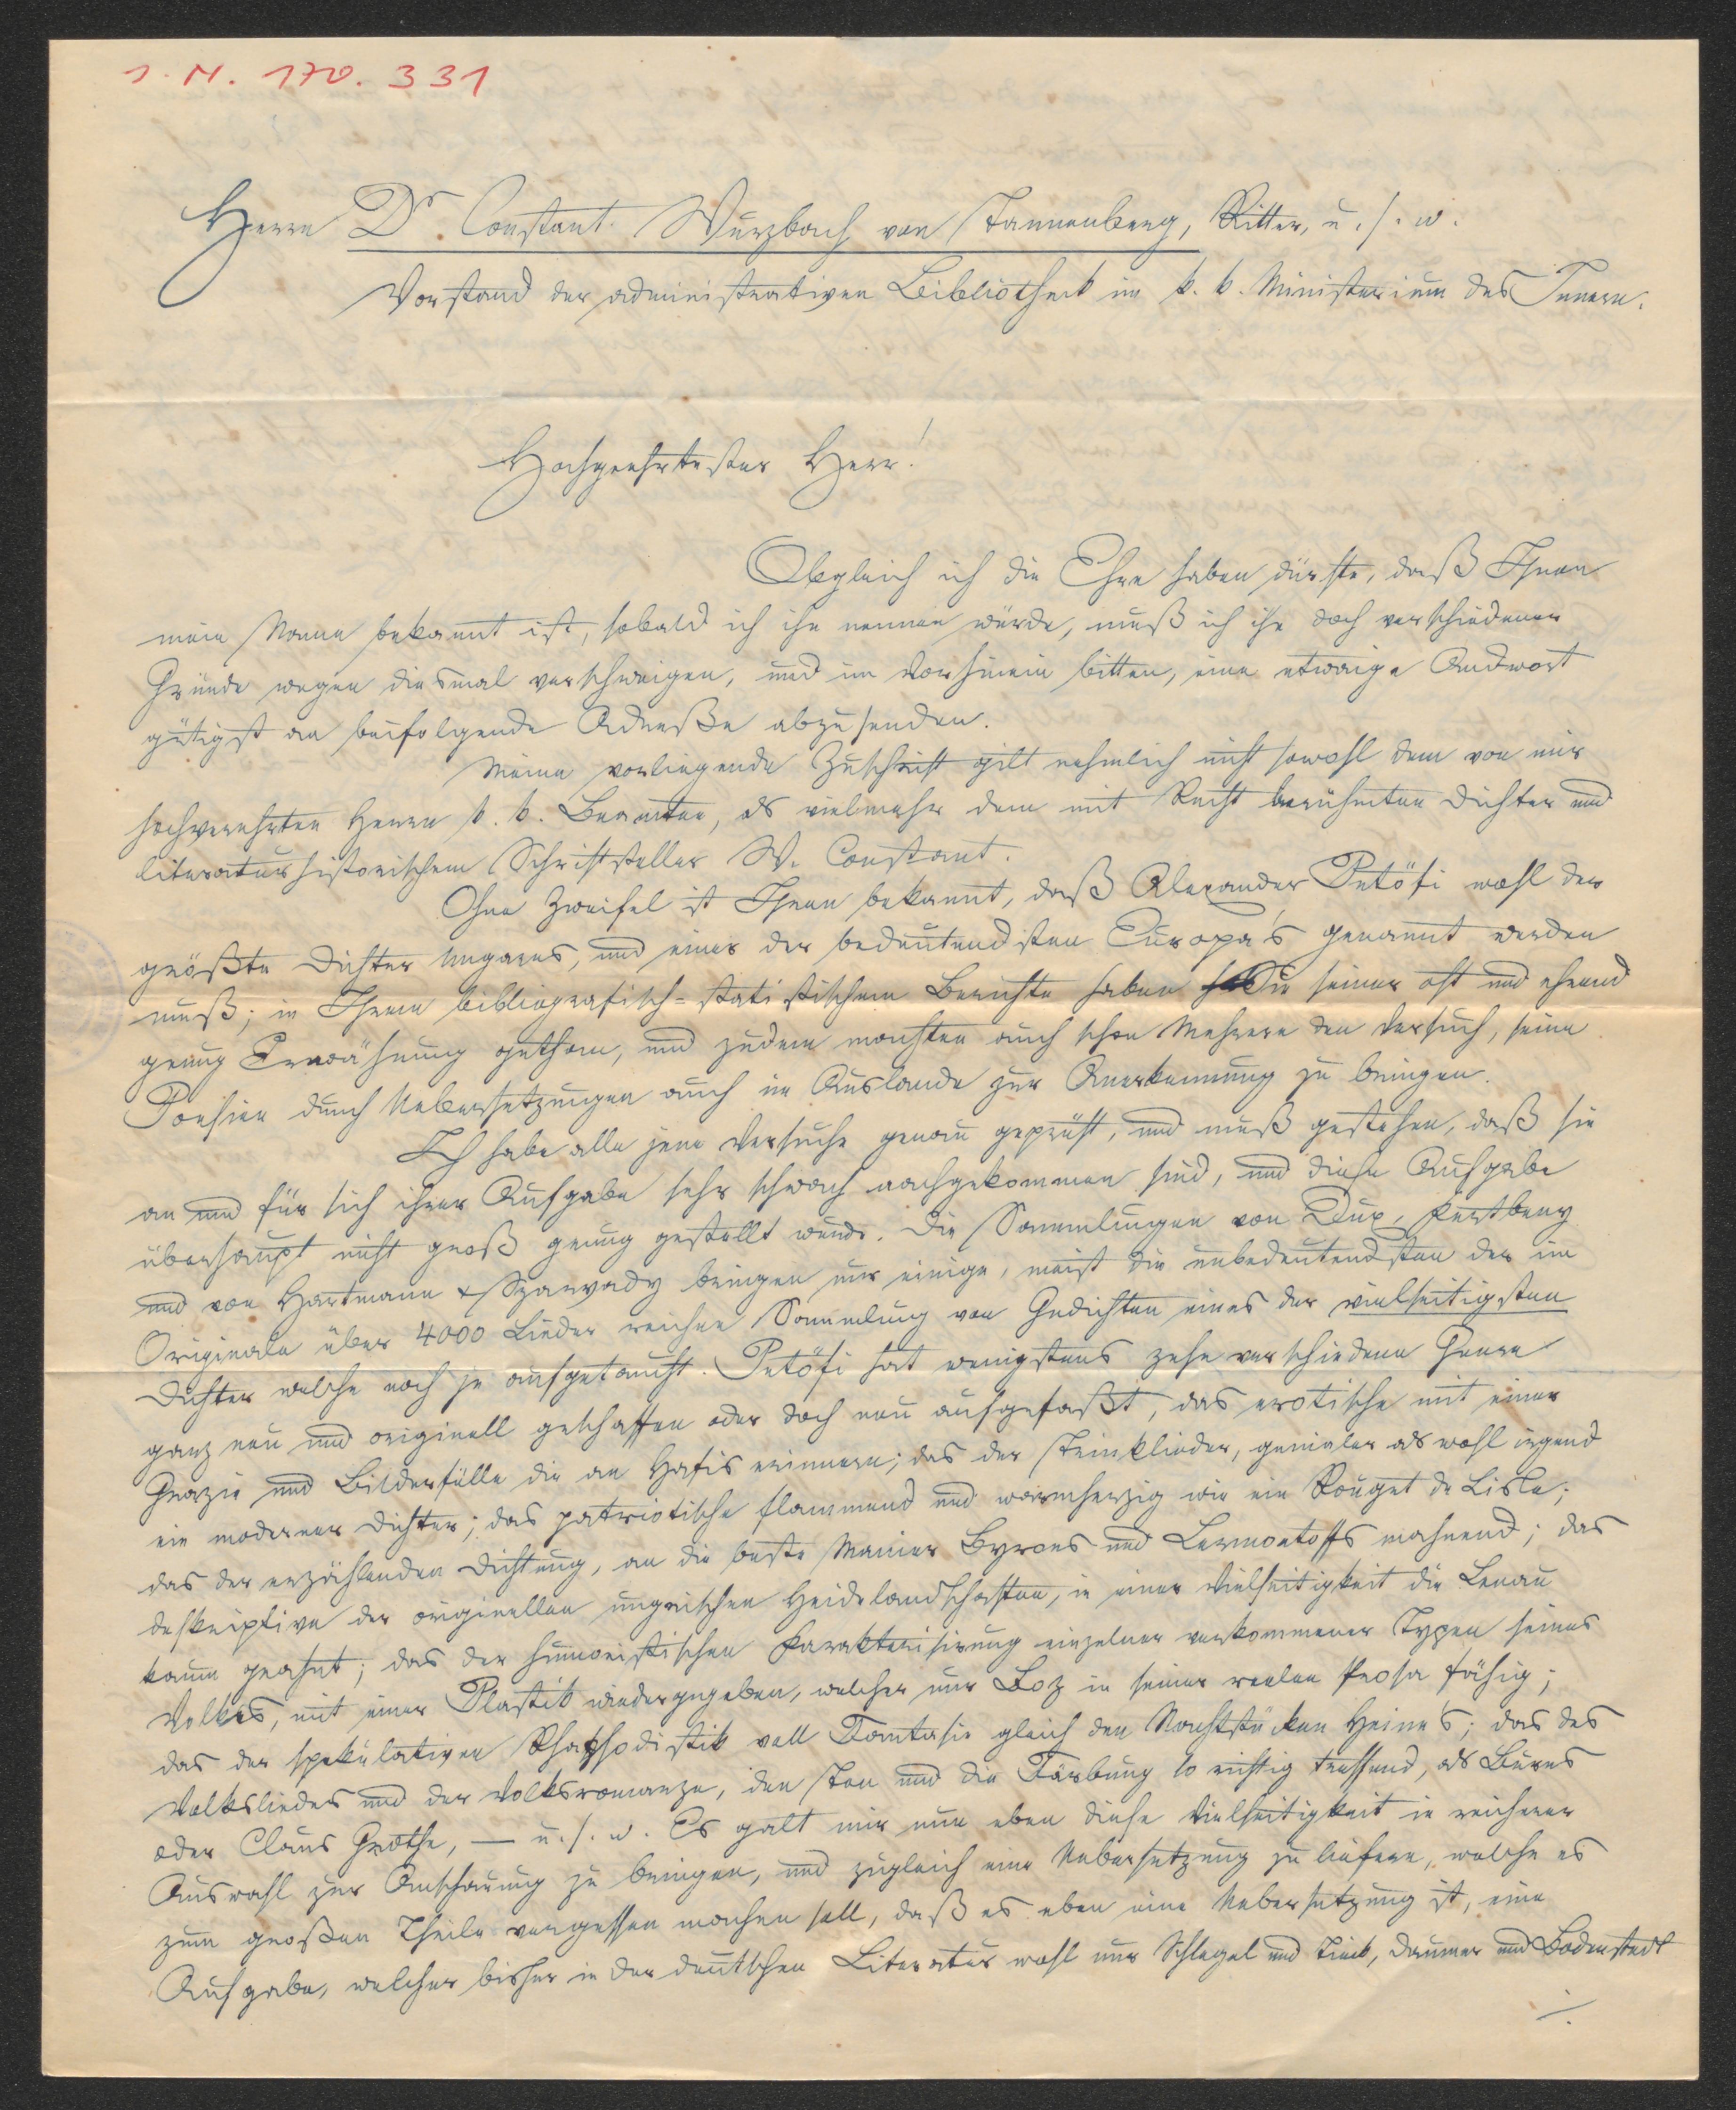 J. N. 170.331
Herrn Dr. Constant. Wurzbach von Tannenberg, Ritter, u. s. w.
Vorstand der administrativen Bibliothek im k. k. Ministerium des Innern.
Hochgeehrtester Herr!
Obgleich ich die Ehre haben dürfte, daß Ihnen
mein Name bekannt ist, sobald ich ihn nennen würde, muß ich ihn doch verschiedener
Gründe wegen diesmal verschweigen, und im Vorhinein bitten, eine etwaige Andwort
gütigst an beifolgende Adreße abzusenden.
Meine vorliegende Zuschrift gilt nehmlich nicht sowohl dem von mir
hochverehrten Herrn k. k. Beamten, als vielmehr dem mit Recht berühmten Dichter und
literaturhistorischem Schriftsteller W. Constant.
Ohne Zweifel ist Ihnen bekannt, daß Alexander Petöfi wohl der
größte Dichter Ungarns, und einer der bedeutendsten Europa's genannt werden
muß; in Ihrem bibliografisch-statistischem Berichte haben Sie seiner oft und ehrend
genug Erwähnung gethan, und zudem machten auch schon Mehrere den Versuch, seine
Poesien durch Uebersetzungen auch im Auslande zur Anerkennung zu bringen.
Ich habe alle jene Versuche genau geprüft, und muß gestehen, daß sie
an und für sich ihrer Aufgabe sehr schwach nachgekommen sind, und diese Aufgabe
überhaupt nicht groß genug gestellt wurde. Die Sammlungen von Dux, Kertbeny
und von Hartmann & Szarvady bringen nur einige, meist die unbedeutendsten der im
Originale über 4000 Lieder reichen Sammlung von Gedichten eines der vielseitigsten
Dichter welche noch je aufgetaucht. Petöfi hat wenigstens zehn verschiedene Genre
ganz neu und originell geschaffen oder doch neu aufgefaßt, das erotische mit einer
Grazie und Bilderfülle die an Hafis erinnern; das der Trinklieder, genialer als wohl irgend
ein moderner Dichter; das patriotische flammend und warmherzig wie ein Rouget de Lisle;
das der erzählenden Dichtung, an die beste Manier Byrons und Lermontoffs mahnend; das
deskriptive der originellen ungrischen Heidelandschaften, in einer Vielseitigkeit die Lenau
kaum geahnt; das der humoristischen Karakterisirung einzelner verkommener Typen seines
Volkes, mit einer Plastik wiedergegeben, welcher nur Boz in seiner reelen Prosa fähig;
das der spekulativen Rhapsodistik voll Fantasie gleich den Nachtstücken Heine's; das des
Volksliedes und der Volksromanze, den Ton und die Färbung so richtig treffend, als Burns
oder Claus Grothe, — u. s. w. Es galt mir nun eben diese Vielseitigkeit in reicherer
Auswahl zur Anschauung zu bringen, und zugleich eine Uebersetzung zu liefern, welche es
zum großen Theile vergessen machen soll, daß es eben eine Uebersetzung ist, eine
Aufgabe, welcher bisher in der deutschen Literatur wohl nur Schlegel und Tieck, Daumer und Bodenstedt
./.